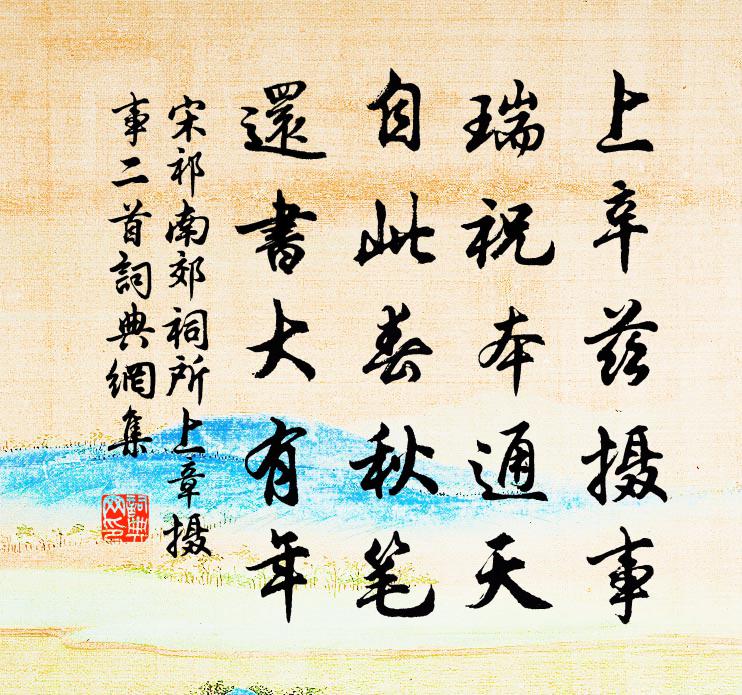 上辛兹摄事
瑞祝本通天
自此春秋笔
還書大有年
宋祁南郊祠所上章摄
事二首詞典網集
詞典网印